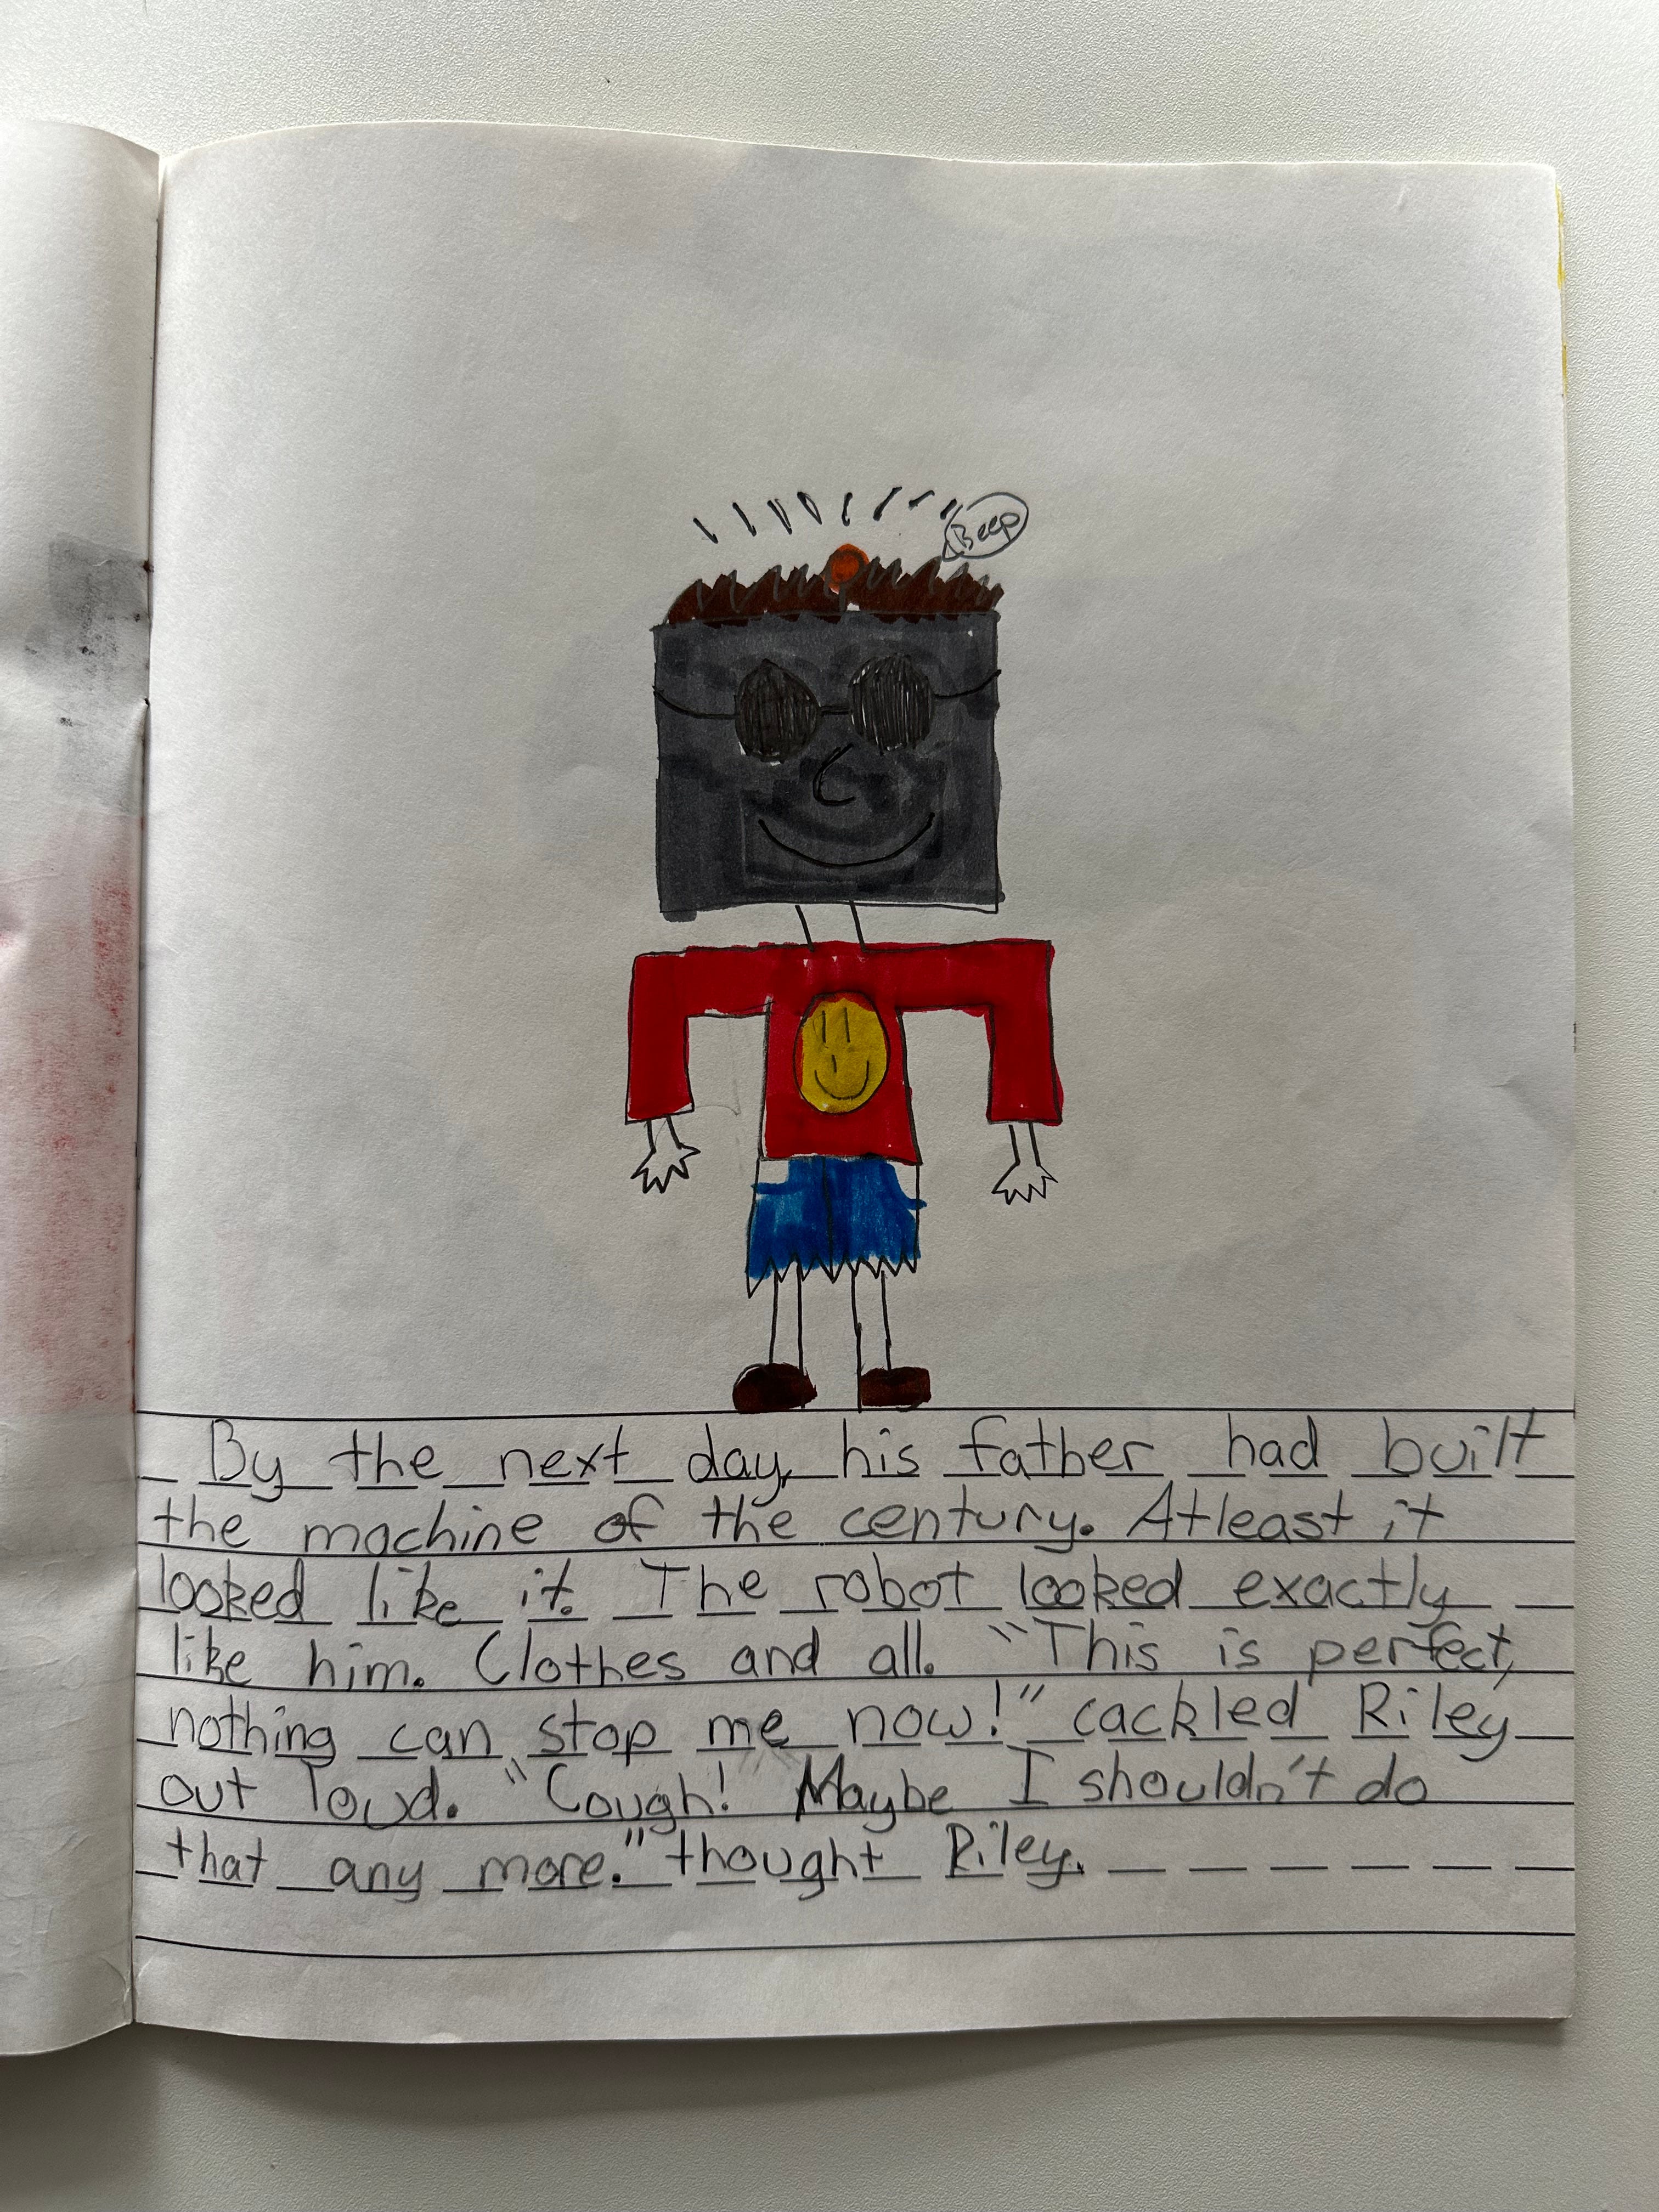 Beep
By the next day, his father had built
the machine of the century. Atleast it
looked like it. The robot looked exactly
like him. Clothes and all. "This is perfect,
nothing can stop me now!" cackled Riley
out loud. "Cough! Maybe I shouldn't do
that any more." thought Riley.